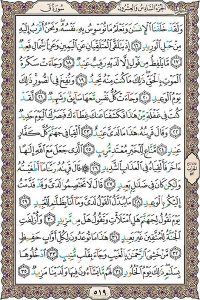 الجزء السادس والعشرون سورة ق
وَلَقَدْ خَلَقْنَا الْإِنسَانَ وَنَعْلَمُ مَا تُوَسْوِسُ بِهِ نَفْسُهُ وَنَحْنُ أَقْرَبُ إِلَيْهِ
مِنْ حَبْلِ الْوَرِيدِ ١٦ إِذْ يَتَلَقَّى الْمُتَلَقِّيَانِ عَنِ الْيَمِينِ وَعَنِ الشِّمَالِ قَعِيدٌ
١٧ مَّا يَلْفِظُ مِن قَوْلٍ إِلَّا لَدَيْهِ رَقِيبٌ عَتِيدٌ ١٨ وَجَاءَتْ سَكْرَةُ
الْمَوْتِ بِالْحَقِّ ذَٰلِكَ مَا كُنتَ مِنْهُ تَحِيدُ ١٩ وَنُفِخَ فِي الصُّورِ ذَٰلِكَ
يَوْمُ الْوَعِيدِ ٢٠ وَجَاءَتْ كُلُّ نَفْسٍ مَّعَهَا سَائِقٌ وَشَهِيدٌ ٢١
لَّقَدْ كُنتَ فِي غَفْلَةٍ مِّنْ هَٰذَا فَكَشَفْنَا عَنكَ غِطَاءَكَ فَبَصَرُكَ الْيَوْمَ
حَدِيدٌ ٢٢ وَقَالَ قَرِينُهُ هَٰذَا مَا لَدَيَّ عَتِيدٌ ٢٣ أَلْقِيَا فِي جَهَنَّمَ كُلَّ كَفَّارٍ
عَنِيدٍ ٢٤ مَّنَّاعٍ لِّلْخَيْرِ مُعْتَدٍ مُّرِيبٍ ٢٥ الَّذِي جَعَلَ مَعَ اللَّهِ إِلَٰهًا
آخَرَ فَأَلْقِيَاهُ فِي الْعَذَابِ الشَّدِيدِ ٢٦ قَالَ قَرِينُهُ رَبَّنَا مَا أَطْغَيْتُهُ
وَلَٰكِن كَانَ فِي ضَلَالٍ بَعِيدٍ ٢٧ قَالَ لَا تَخْتَصِمُوا لَدَيَّ وَقَدْ قَدَّمْتُ
إِلَيْكُم بِالْوَعِيدِ ٢٨ مَا يُبَدَّلُ الْقَوْلُ لَدَيَّ وَمَا أَنَا بِظَلَّامٍ لِّلْعَبِيدِ ٢٩
يَوْمَ نَقُولُ لِجَهَنَّمَ هَلِ امْتَلَأْتِ وَتَقُولُ هَلْ مِن مَّزِيدٍ ٣٠ وَأُزْلِفَتِ
الْجَنَّةُ لِلْمُتَّقِينَ غَيْرَ بَعِيدٍ ٣١ هَٰذَا مَا تُوعَدُونَ لِكُلِّ أَوَّابٍ حَفِيظٍ
٣٢ مَّنْ خَشِيَ الرَّحْمَٰنَ بِالْغَيْبِ وَجَاءَ بِقَلْبٍ مُّنِيبٍ ٣٣ ادْخُلُوهَا
بِسَلَامٍ ذَٰلِكَ يَوْمُ الْخُلُودِ ٣٤ لَهُم مَّا يَشَاءُونَ فِيهَا وَلَدَيْنَا مَزِيدٌ ٣٥
٥١٩